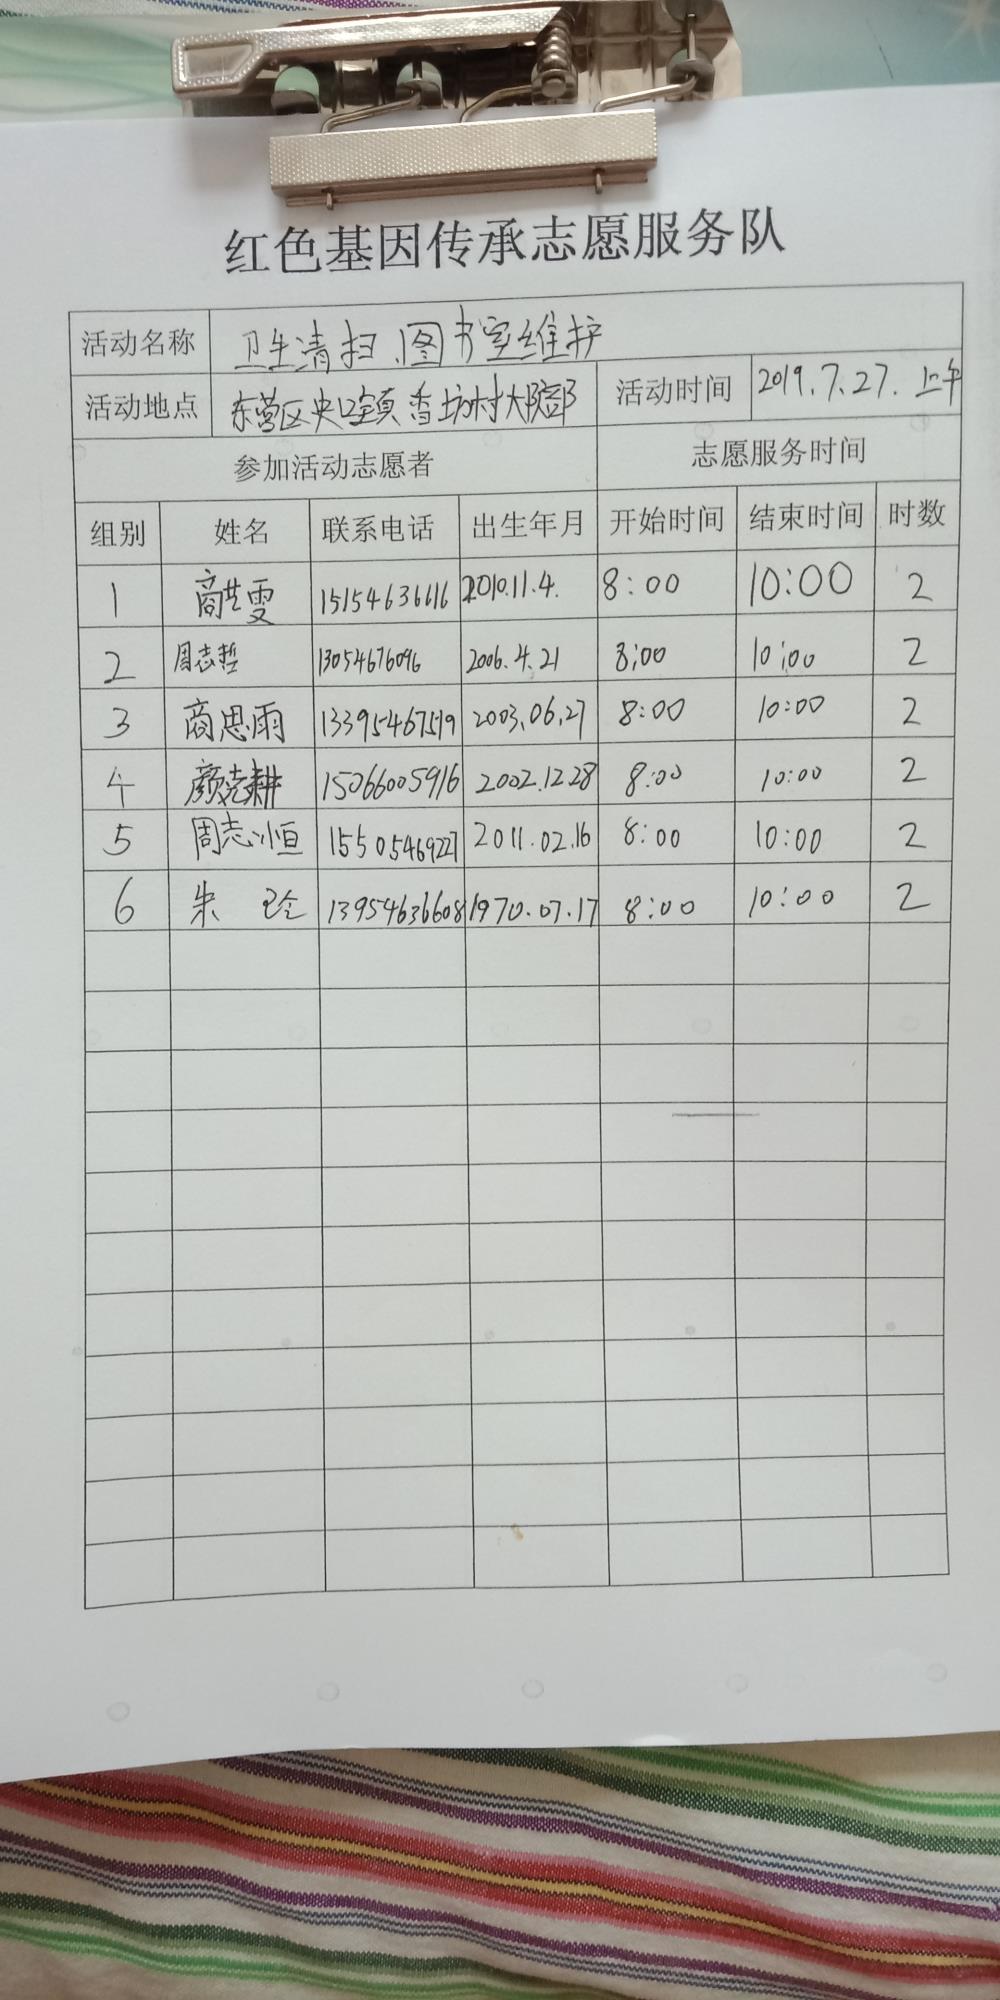 红色基因传承志愿服务队
活动名称 卫生清扫、图书室维护
活动地点 东营区史口镇香坊村大队部 活动时间 2019.7.27.上午
参加活动志愿者 志愿服务时间
组别 姓名 联系电话 出生年月 开始时间 结束时间 时数
1 商艺雯 15154636616 2010.11.4. 8:00 10:00 2
2 周志哲 13054676096 2006.4.21 8:00 10:00 2
3 商思雨 13395467519 2003.06.27 8:00 10:00 2
4 颜克耕 15066005916 2002.12.28 8:00 10:00 2
5 周志恒 15505469227 2011.02.16 8:00 10:00 2
6 朱玲 13954636608 1970.07.17 8:00 10:00 2